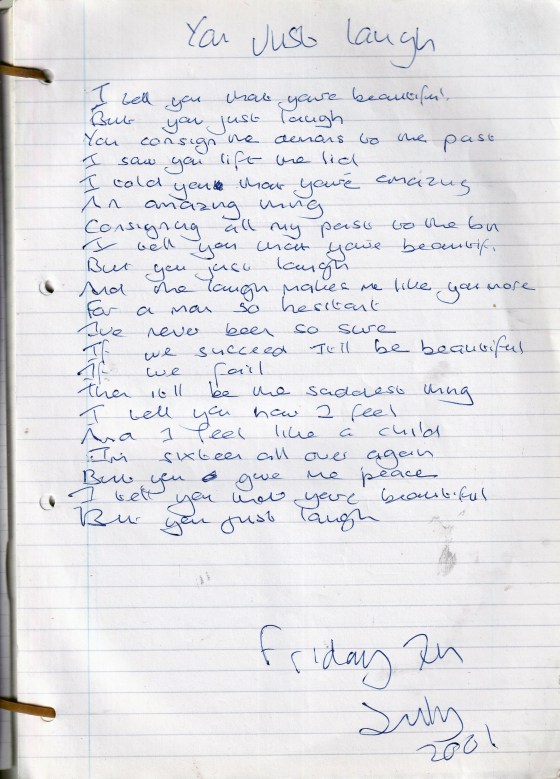 You Just Laugh
I tell you that you're beautiful.
But you just laugh
You consign the demons to the past
I saw you lift the lid
I told you that you're amazing
An amazing thing
Consigning all my past to the bin
I tell you that you're beautiful.
But you just laugh
And the laugh makes me like you more
For a man so hesitant
I've never been so sure
If we succeed It'll be beautiful
If we fail
Then it'll be the saddest thing
I tell you how I feel
And I feel like a child
I'm sixteen all over again
But you give me peace
I tell you that you're beautiful
But you just laugh
Friday
July
2001